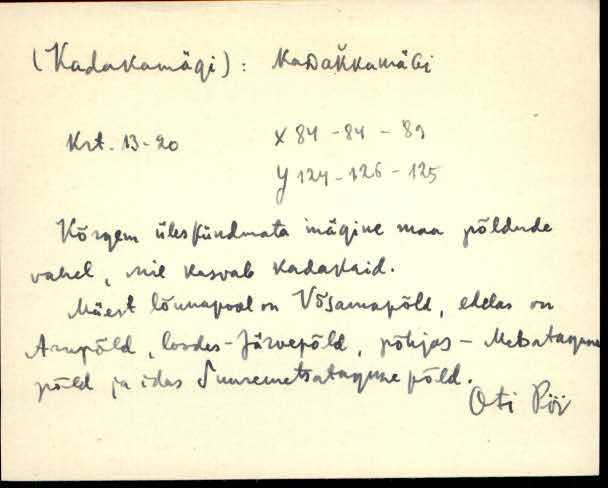 (Kadakamägi): KaDaǨkamäGi
Krt. 13-20 X 84 - 84 - 89
Y 124 - 126 - 125
Kõrgem ülesfündmata mägine maa põldude
vahel, siil kasvab kadakaid.
Mäest lõunapool on Võsamapõld, edelas on
Arupõld, loodes - Järvepõld, põhjas - Metsatagune
põld ja idas Suuremetsatagune põld.
Oti